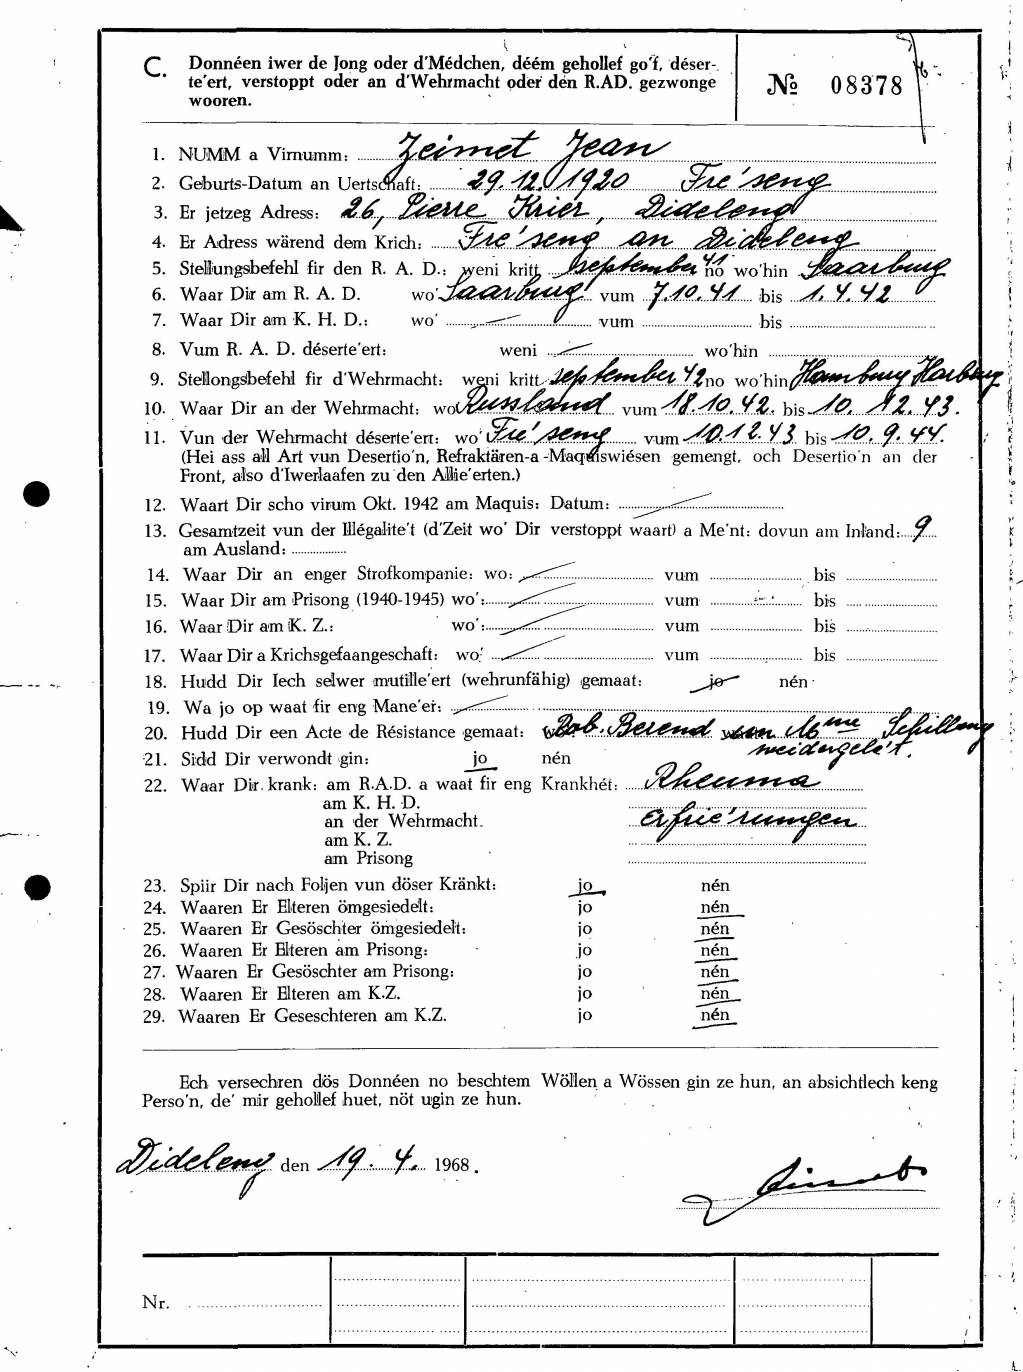 C. Donnéen iwer de Jong oder d'Médchen, déém gehollef go'f, déser-
te'ert, verstoppt oder an d'Wehrmacht oder den R.AD. gezwonge
wooren.
№ 08378
1. NUMM a Virnumm: Zeimet Jean
2. Geburts-Datum an Uertschaft: 29.12.1920 Fre'seng
3. Er jetzeg Adress: 26, Pierre Krier, Dideleng
4. Er Adress wärend dem Krich: Fre'seng an Dideleng
5. Stellungsbefehl fir den R. A. D.: weni kritt september 41 no wo'hin Saarburg
6. Waar Dir am R. A. D. wo' Saarburg vum 7.10.41 bis 1.4.42
7. Waar Dir am K. H. D.: wo' vum bis
8. Vum R. A. D. déserte'ert: weni wo'hin
9. Stellongsbefehl fir d'Wehrmacht: weni kritt september 42 no wo'hin Hamburg Harburg
10. Waar Dir an der Wehrmacht: wo Russland vum 18.10.42. bis 10. 12. 43.
11. Vun der Wehrmacht déserte'ert: wo' Fre'seng vum 10.12.43 bis 10.9.44.
(Hei ass all Art vun Desertio'n, Refraktären-a -Maquiswiésen gemengt, och Desertio'n an der
Front, also d'Iwerlaafen zu den Allie'erten.)
12. Waart Dir scho virum Okt. 1942 am Maquis: Datum:
13. Gesamtzeit vun der Illégalite't (d'Zeit wo' Dir verstoppt waart) a Me'nt: dovun am Inland: 9
am Ausland:
14. Waar Dir an enger Strofkompanie: wo: vum bis
15. Waar Dir am Prisong (1940-1945) wo': vum bis
16. Waar Dir am K. Z.: wo': vum bis
17. Waar Dir a Krichsgefaangeschaft: wo' vum bis
18. Hudd Dir Iech selwer mutille'ert (wehrunfähig) gemaat: jo nén
19. Wa jo op waat fir eng Mane'er:
20. Hudd Dir een Acte de Résistance gemaat: Bob. Berend vun Mme Schilleng
weidergele't.
21. Sidd Dir verwondt gin: jo nén
22. Waar Dir krank: am R.A.D. a waat fir eng Krankhét: Rheuma
am K. H. D.
an der Wehrmacht. Erfrie'rungen
am K. Z.
am Prisong
23. Spiir Dir nach Foljen vun döser Kränkt: jo nén
24. Waaren Er Elteren ömgesiedelt: jo nén
25. Waaren Er Gesöschter ömgesiedelt: jo nén
26. Waaren Er Elteren am Prisong: jo nén
27. Waaren Er Gesöschter am Prisong: jo nén
28. Waaren Er Elteren am K.Z. jo nén
29. Waaren Er Geseschteren am K.Z. jo nén
Ech versechren dös Donnéen no beschtem Wöllen a Wössen gin ze hun, an absichtlech keng
Perso'n, de' mir gehollef huet, nöt ugin ze hun.
Dideleng den 19. 4. 1968.
Nr.